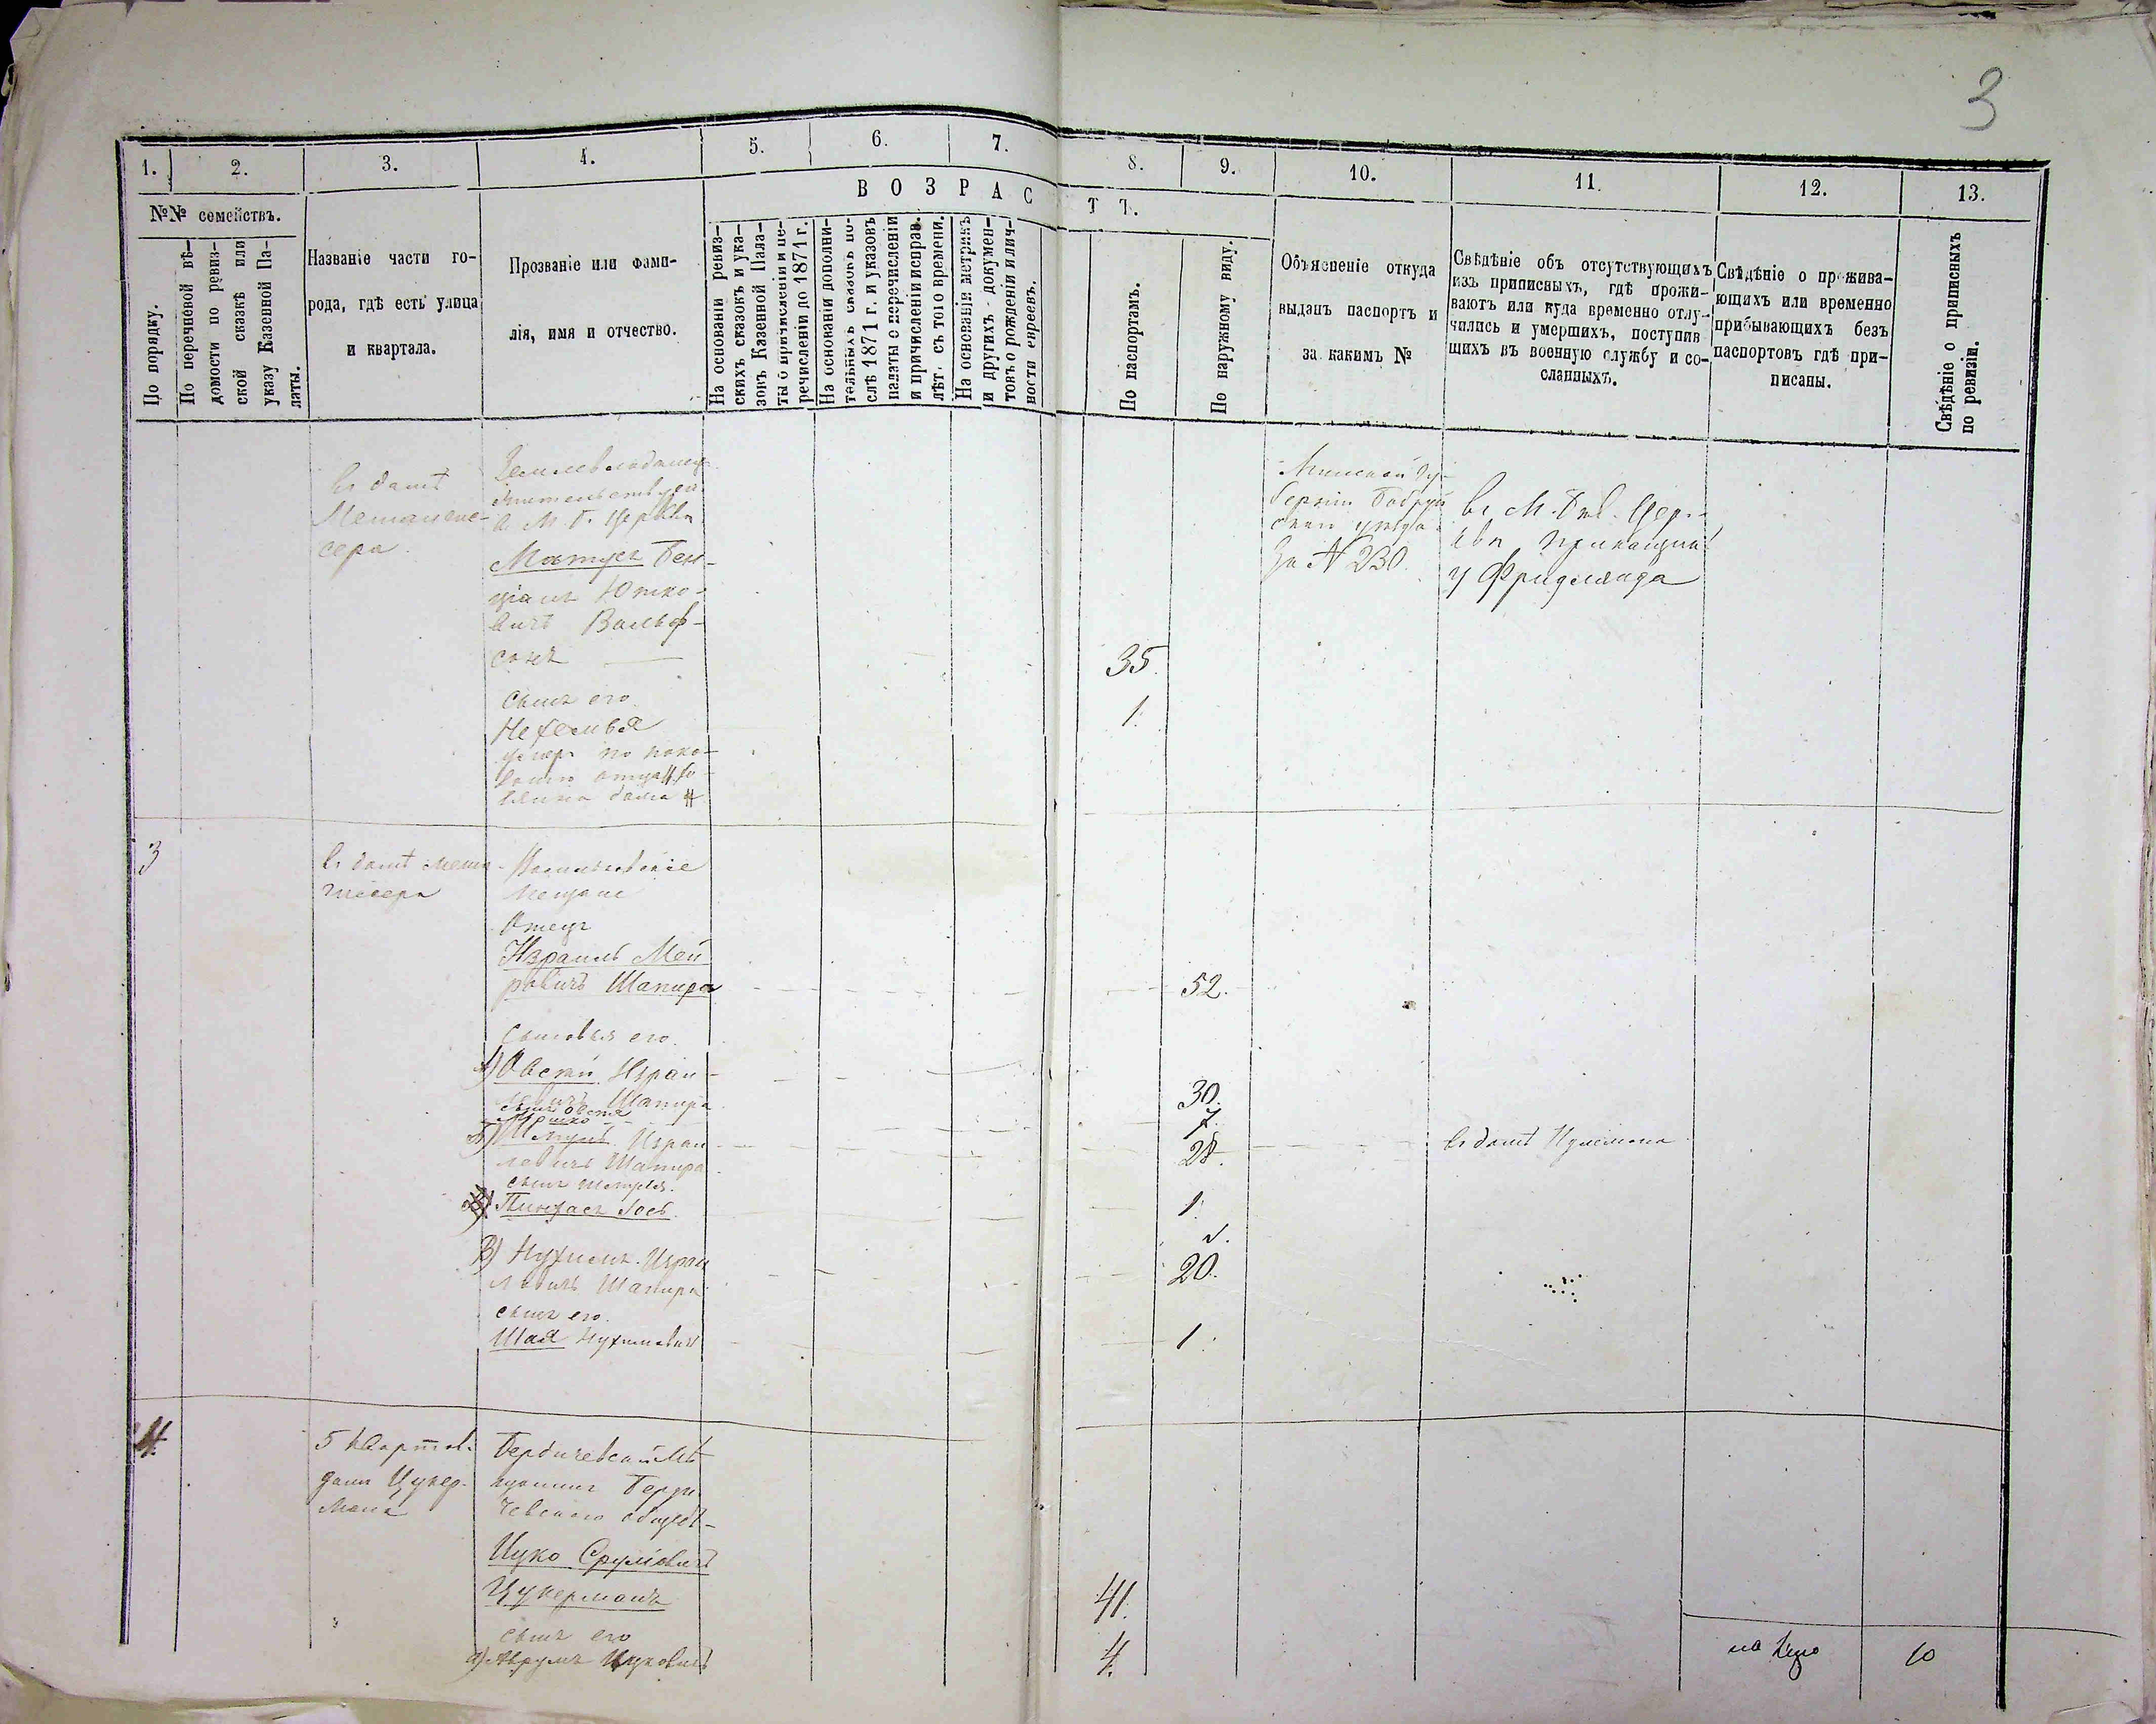 3
1. 2. 3. 4. 5. 6. 7. 8. 9. 10. 11. 12. 13.
№№ семействъ.
В О З Р А С Т Ъ.
По порядку.
По перечневой вѣ-
домости по ревиз-
ской сказкѣ или
указу Казенной Па-
латы.
Названіе части го-
рода, гдѣ есть улица
и квартала.
Прозваніе или фами-
лія, имя и отчество.
На основаніи ревиз-
скихъ сказокъ и ука-
зовъ Казенной Пала-
ты о причисленіи и пе-
речисленіи до 1871 г.
На основаніи дополни-
тельныхъ сказокъ по-
слѣ 1871 г. и указовъ
палаты о перечисленіи
и причисленіи исправ.
лѣт. съ того времени.
На основаніи метрикъ
и другихъ документовъ о рожденіи и лич-
ности евреевъ.
По паспортамъ.
По наружному виду.
Объясненіе откуда
выданъ паспортъ и
за какимъ №
Свѣдѣніе объ отсутствующихъ
изъ приписныхъ, гдѣ прожи-
ваютъ или куда временно отлу-
чились и умершихъ, поступив-
щихъ въ военную службу и со-
сланныхъ.
Свѣдѣніе о прожива-
ющихъ или временно
прибывающихъ безъ
паспортовъ гдѣ при-
писаны.
Свѣдѣніе о приписныхъ
по ревизіи.
въ домѣ
сера
Церкви
Матусъ Бен-
ціанъ Ютко-
вичъ Вольф-
сонъ
35
сынъ его
1.
Нехемья
умер по пока-
дома
Минской Гу-
берніи Бобруй
скаго уѣзда
За № 230.
въ М. Бѣл. Цер-
кви
у Фридлянда
3
въ домѣ
Мещане
Отецъ
Израиль Мей
ровичъ Шапира
52.
сыновья его.
1) Овсей Изра-
левичъ Шапира
30.
сынъ Овсея
7.
Шмуль Изра-
28.
левичъ Шапира
сынъ Шмуля.
въ домѣ
Пинхасъ Іосъ
1.
3) Нухимъ Изра
20.
левичъ Шапира
сынъ его.
Шая Нухимовичъ
1.
4.
5 Квартал.
домъ Цукер-
мана
Бердичевскій Мѣ
щанинъ Берди
чевскаго общест-
Ицко Срулiовичъ
Цукерманъ
41.
сынъ его
а) Аврумъ Ицковичъ
4.
10